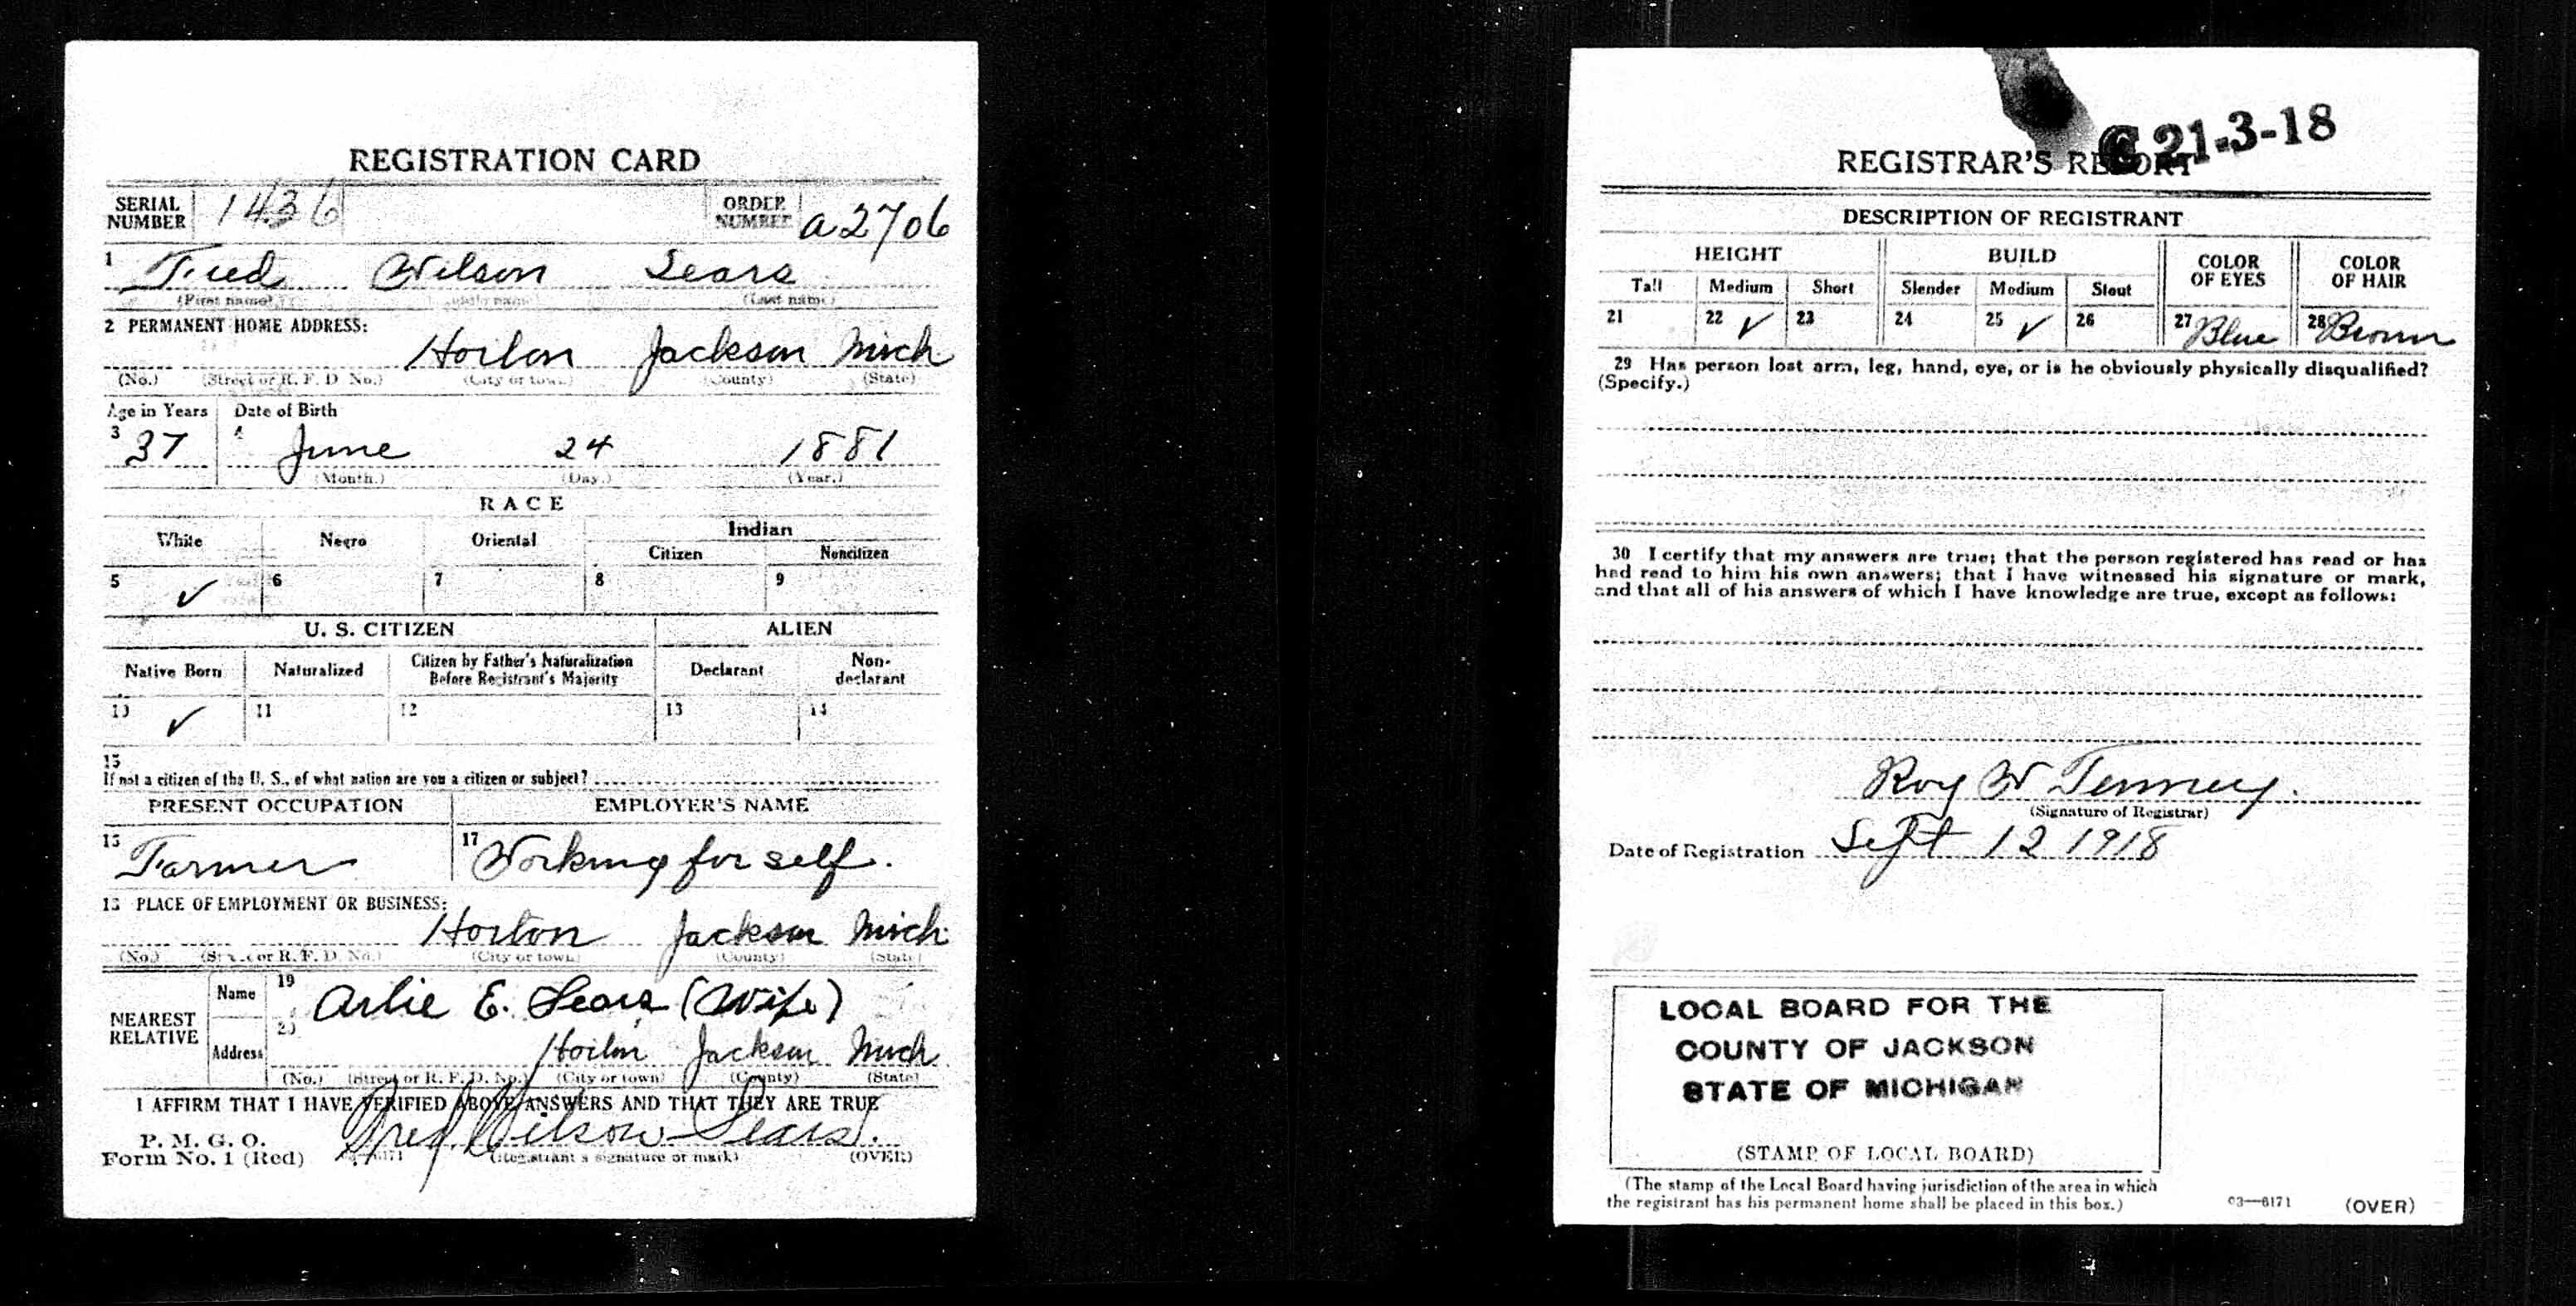 REGISTRATION CARD
SERIAL NUMBER 1436 ORDER NUMBER a2706
1 Fred Wilson Sears
(First name) (Middle name) (Last name)
2 PERMANENT HOME ADDRESS:
Horton Jackson Mich
(No.) (Street or R. F. D. No.) (City or town) (County) (State)
Age in Years Date of Birth
3 37 4 June 24 1881
(Month.) (Day.) (Year.)
RACE
White Negro Oriental Indian
Citizen Noncitizen
5 ✓ 6 7 8 9
U. S. CITIZEN ALIEN
Native Born Naturalized Citizen by Father's Naturalization Before Registrant's Majority Declarant Non-declarant
10 ✓ 11 12 13 14
15
If not a citizen of the U. S., of what nation are you a citizen or subject?
PRESENT OCCUPATION EMPLOYER'S NAME
16 Farmer 17 Working for self.
18 PLACE OF EMPLOYMENT OR BUSINESS:
Horton Jackson Mich
(No.) (Street or R. F. D. No.) (City or town) (County) (State)
NEAREST RELATIVE Name 19 Arlie E. Sears (Wife)
Address 20 Horton Jackson Mich
(No.) (Street or R. F. D. No.) (City or town) (County) (State)
I AFFIRM THAT I HAVE VERIFIED ABOVE ANSWERS AND THAT THEY ARE TRUE
P. M. G. O.
Form No. 1 (Red) Fred Wilson Sears.
(Registrant's signature or mark) (OVER)
21-3-18
REGISTRAR'S REPORT
DESCRIPTION OF REGISTRANT
HEIGHT BUILD COLOR OF EYES COLOR OF HAIR
Tall Medium Short Slender Medium Stout
21 22 ✓ 23 24 25 ✓ 26 27 Blue 28 Brown
29 Has person lost arm, leg, hand, eye, or is he obviously physically disqualified?
(Specify.)
30 I certify that my answers are true; that the person registered has read or has
had read to him his own answers; that I have witnessed his signature or mark,
and that all of his answers of which I have knowledge are true, except as follows:
Roy W Tenney.
(Signature of Registrar)
Date of Registration Sept 12 1918
LOCAL BOARD FOR THE
COUNTY OF JACKSON
STATE OF MICHIGAN
(STAMP OF LOCAL BOARD)
(The stamp of the Local Board having jurisdiction of the area in which
the registrant has his permanent home shall be placed in this box.)
03—6171 (OVER)